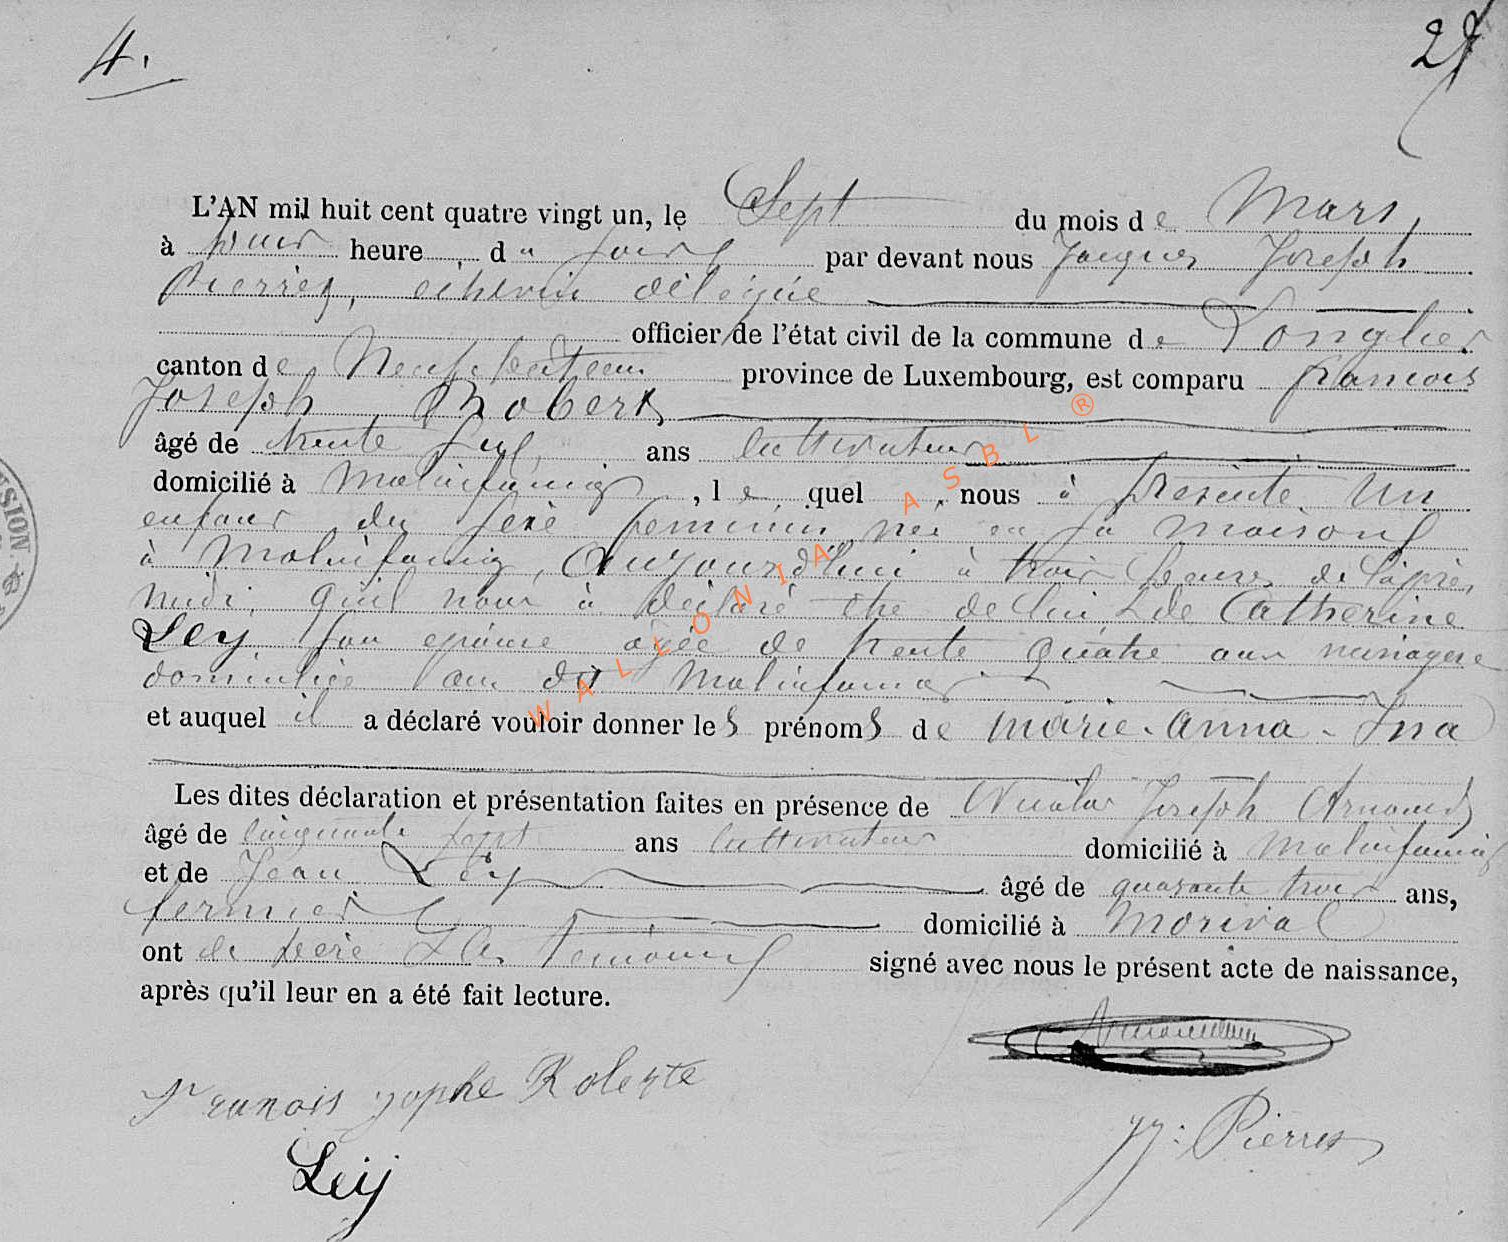 4.
27
L'AN mil huit cent quatre vingt un, le Sept du mois de Mars,
à heure, du jour par devant nous Jacques Joseph
Pierres, échevin délégué
officier de l'état civil de la commune de Longlier
canton de Neufchateau province de Luxembourg, est comparu francois
Joseph Robert
âgé de trente ans cultivateur
domicilié à Molinfaing, lequel nous à présenté un
enfant du sexe feminin né en sa maison
à Molinfaing, aujourd'hui à trois heures de l'après
midi, qu'il nous à déclaré être de lui & de Catherine
Ley, son epouse agée de trente quatre ans menagere
domiciliée au dit Molinfaing
et auquel il a déclaré vouloir donner les prénoms de marie-anna-Ina
Les dites déclaration et présentation faites en présence de Nicolas Joseph Arnould
âgé de cinquante sept ans cultivateur domicilié à Molinfaing
et de Jean Ley âgé de quarante trois ans,
fermier domicilié à Morival
ont le père & les témoins signé avec nous le présent acte de naissance,
après qu'il leur en a été fait lecture.
Franois jophe Roberte
JJ: Pierres
Ley
WALLONIA ASBL ®
SION